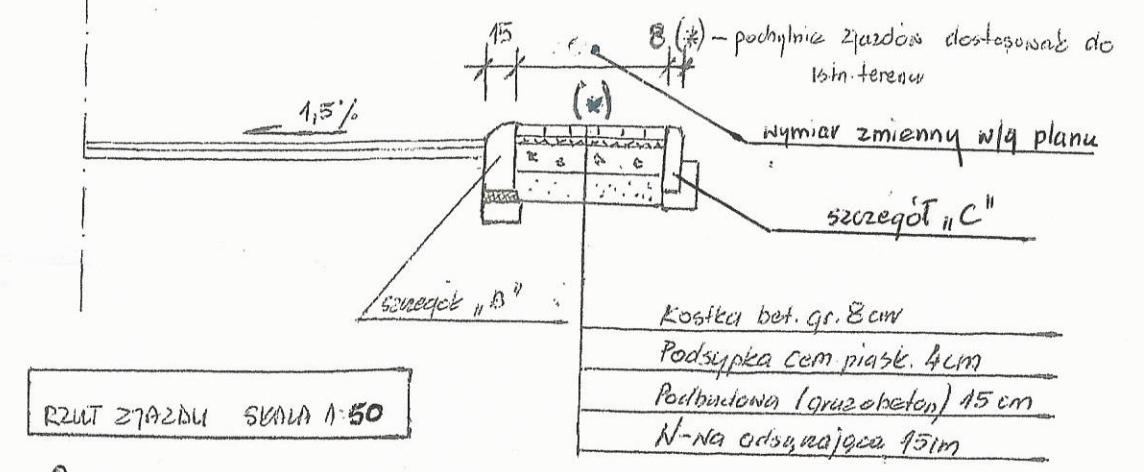 15 8 (*) – pochylnie zjazdów dostosować do
istn. terenu
1,5%
(*)
wymiar zmienny w/g planu
szczegół „C"
szczegół „B"
Kostka bet. gr. 8cm
Podsypka cem. piask. 4cm
Podbudowa (gruzobeton) 15 cm
W-wa odsączająca 15cm
RZUT ZJAZDU SKALA 1:50